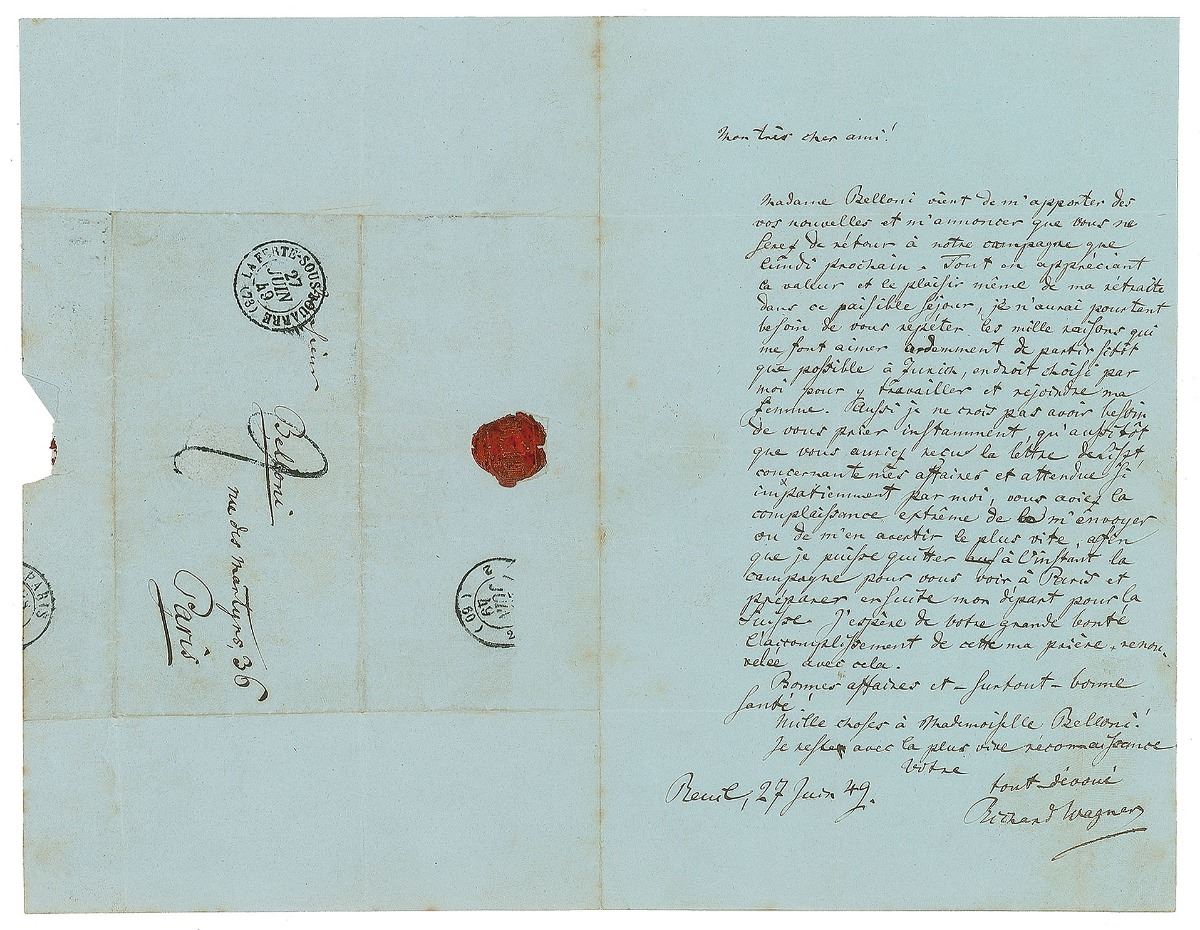 LA FERTÉ-SOUS-JOUARRE (73)
27
JUIN
49
Belloni
rue des martyrs, 36
Paris
2
JUIN
49
(60)
PARIS
Mon très cher ami!
Madame Belloni vient de m'apporter des
vos nouvelles et m'annoncer que vous ne
serez de rétour à notre campagne que
lundi prochain. Tout en appréciant
la valeur et le plaisir même de ma rétraite
dans ce paisible séjour, je n'aurai pourtant
besoin de vous repéter les mille raisons qui
me font aimer ardemment de partir sitôt
que possible à Zurich, endroit choisi par
moi pour y travailler et rejoindre ma
femme. Aussi je ne crois pas avoir besoin
de vous prier instamment, qu'aussitôt
que vous auriez reçu la lettre de Liszt,
concernante mes affaires et attendue si
impatiemment par moi, vous aviez la
complaissance extrême de la m'envoyer
ou de m'en avertir le plus vite, afin
que je puisse quitter à l'instant la
campagne pour vous voir à Paris et
préparer ensuite mon départ pour la
Suisse. J'espère de votre grande bonté
l'accomplissement de cette ma prière, renou-
velée avec cela.
Bonnes affaires et - surtout - bonne
santé!
Mille choses à Mademoiselle Belloni!
Je reste avec la plus vive réconnaissance
Votre
tout dévoué
Richard Wagner
Reuil, 27 Juin 49.